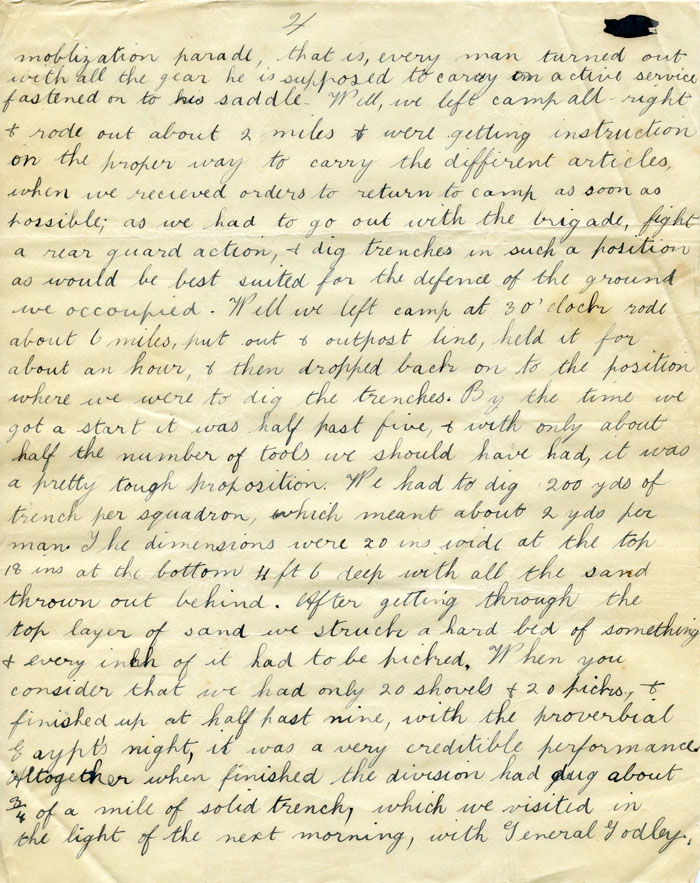 2/
moblization parade, that is, every man turned out
with all the gear he is supposed to carry on active service
fastened on to his saddle. Well, we left camp all right
& rode out about 2 miles & were getting instruction
on the proper way to carry the diffirent articles,
when we recieved orders to return to camp as soon as
possible; as we had to go out with the brigade, fight
a rear guard action, & dig trenches in such a position
as would be best suited for the defence of the ground
we occoupied. Well we left camp at 3 o'clock rode
about 6 miles, put out & outpost line, held it for
about an hour, & then dropped back on to the position
where we were to dig the trenches. By the time we
got a start it was half past five, & with only about
half the number of tools we should have had, it was
a pretty tough proposition. We had to dig 200 yds of
trench per squadron, which meant about 2 yds per
man. The dimensions were 20 ins wide at the top
18 ins at the bottom 4 ft 6 deep with all the sand
thrown out behind. After getting through the
top layer of sand we struck a hard bed of something
& every inch of it had to be picked. When you
consider that we had only 20 shovels & 20 picks, &
finished up at half past nine, with the proverbial
Eaypt's night, it was a very creditible performance.
Altogether when finished the division had dug about
3/4 of a mile of solid trench, which we visited in
the light of the next morning, with General Godley.